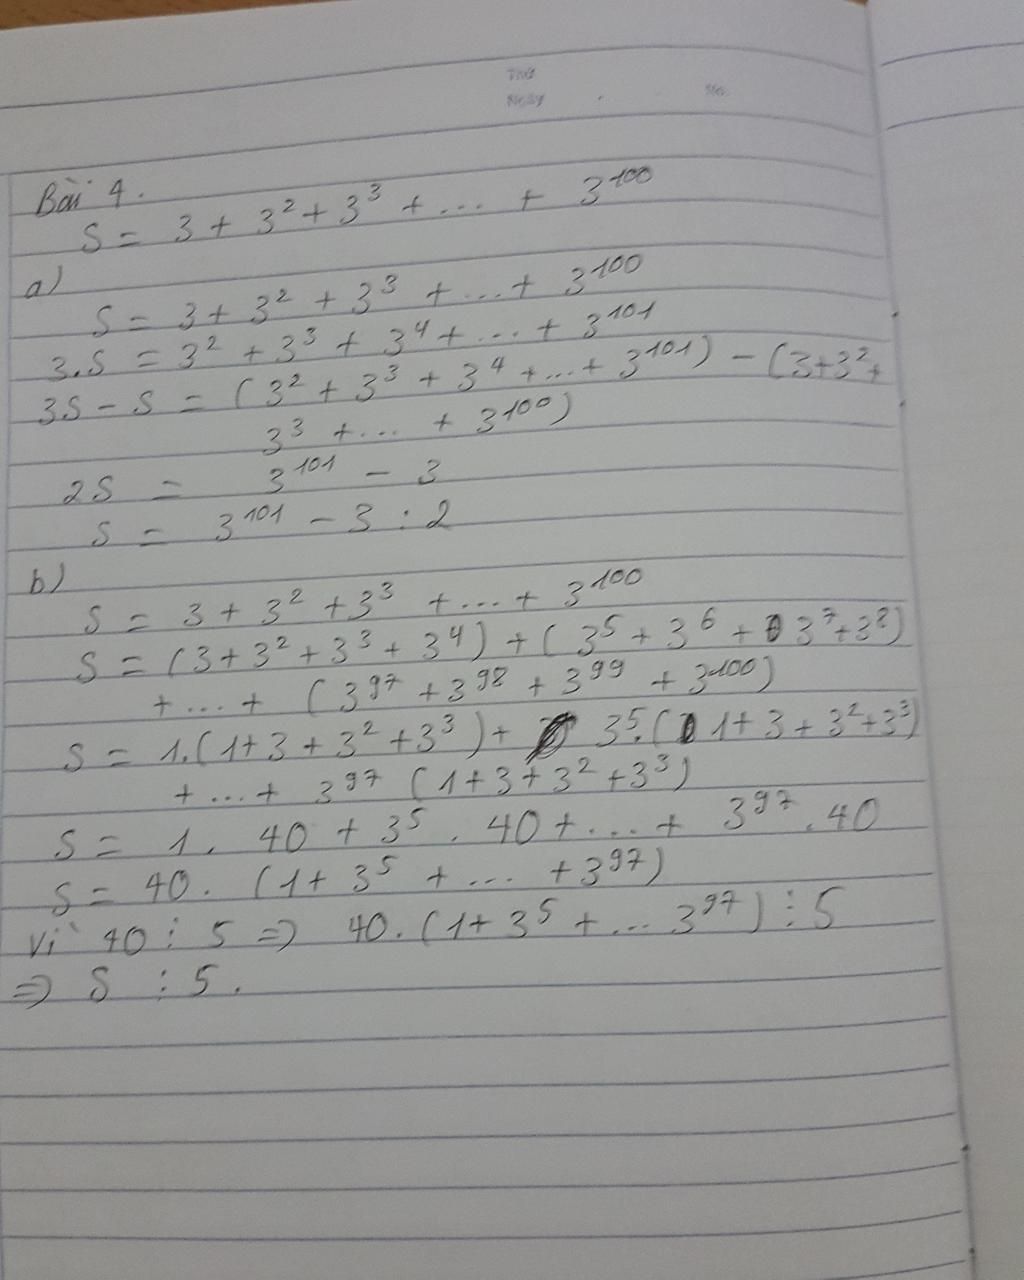 Thứ
Ngày . No.
Bài 4.
S = 3 + 3² + 3³ + ... + 3¹⁰⁰
a)
S = 3 + 3² + 3³ + ... + 3¹⁰⁰
3.S = 3² + 3³ + 3⁴ + ... + 3¹⁰¹
3S - S = (3² + 3³ + 3⁴ + ... + 3¹⁰¹) - (3 + 3² +
3³ + ... + 3¹⁰⁰)
2S = 3¹⁰¹ - 3
S = 3¹⁰¹ - 3 : 2
b)
S = 3 + 3² + 3³ + ... + 3¹⁰⁰
S = (3 + 3² + 3³ + 3⁴) + (3⁵ + 3⁶ + 3⁷ + 3⁸)
+ ... + (3⁹⁷ + 3⁹⁸ + 3⁹⁹ + 3¹⁰⁰)
S = 1.(1 + 3 + 3² + 3³) + 3⁵.(1 + 3 + 3² + 3³)
+ ... + 3⁹⁷ (1 + 3 + 3² + 3³)
S = 1. 40 + 3⁵ . 40 + ... + 3⁹⁷ . 40
S = 40. (1 + 3⁵ + ... + 3⁹⁷)
Vì 40 ⋮ 5 => 40.(1 + 3⁵ + ... 3⁹⁷) ⋮ 5
=> S ⋮ 5.